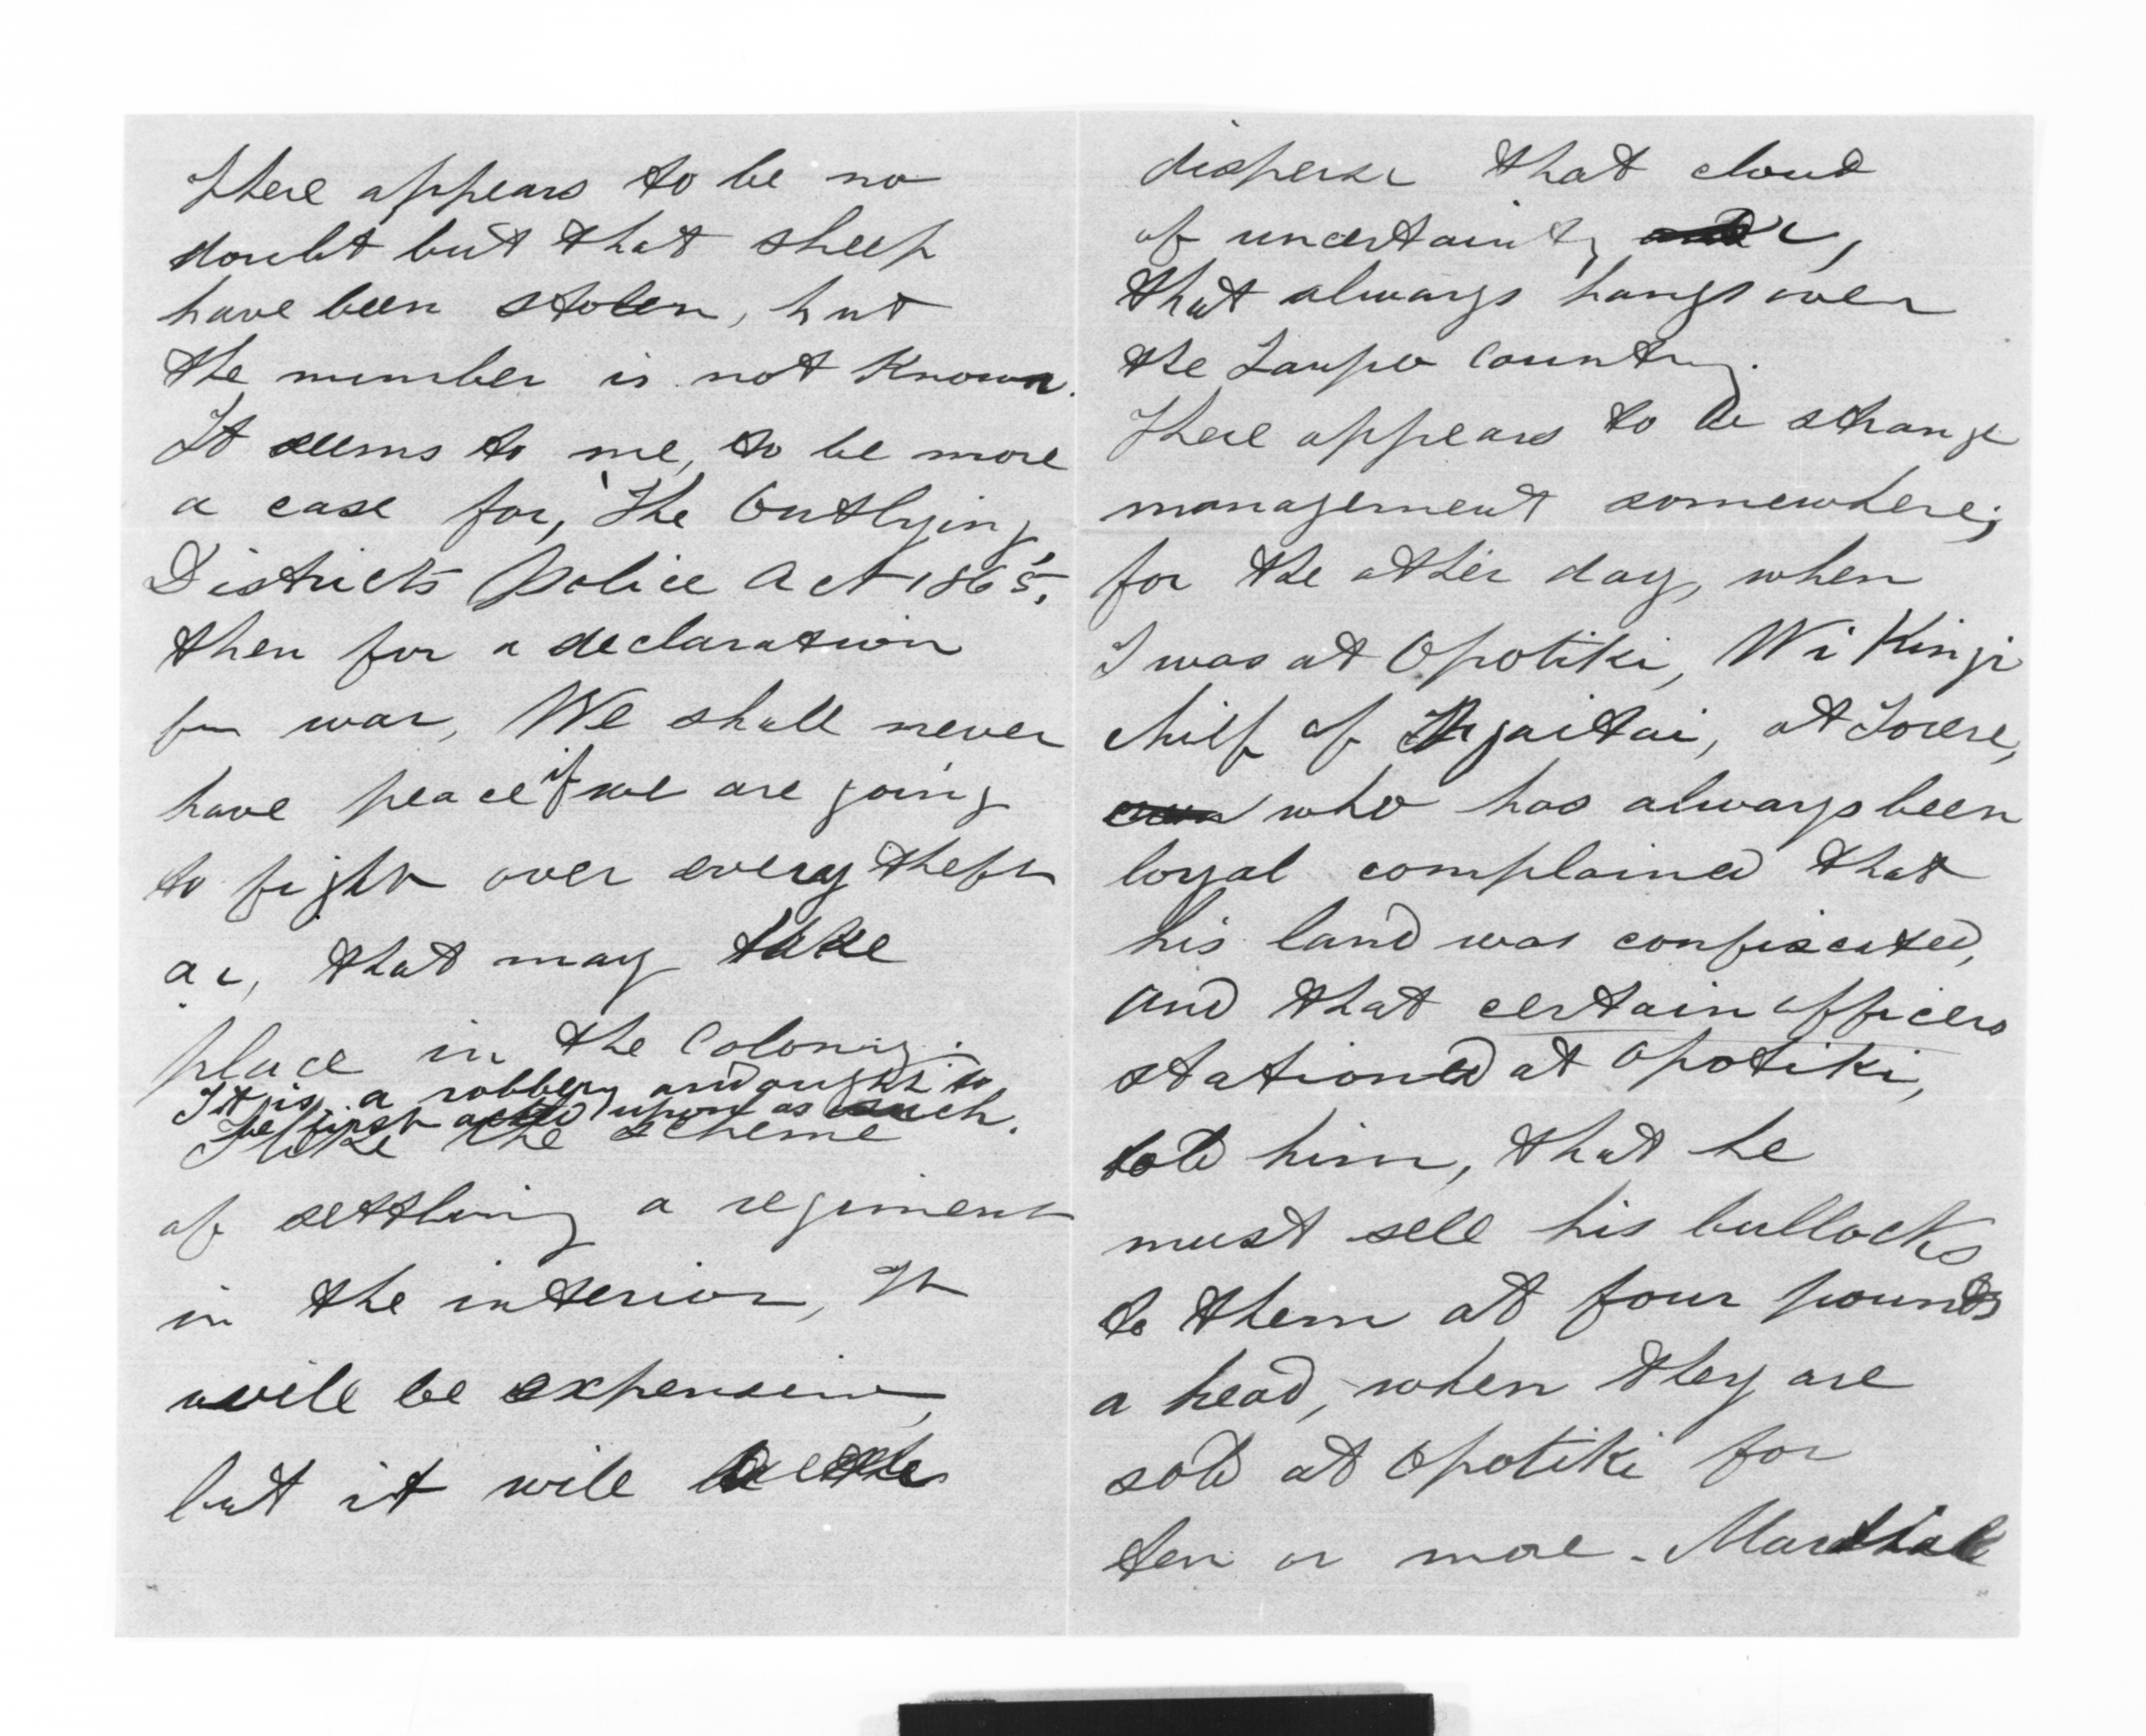 There appears to be no
doubt but that sheep
have been stolen, but
the number is not known.
It seems to me, to be more
a case for, "The Outlying
Districts Police Act 1865",
then for a declaration
for war, We shall never
have peace if we are going
to fight over every theft
&c, that may take
place in the Colony.
It is a robbery and ought to
be first acted upon as such.
I like the scheme
of settling a regiment
in the interior, It
will be expensive,
but it will
disperse that cloud
of uncertainty &c,
that always hangs over
the Taupo Country.
There appears to be strange
management somewhere;
for the other day, when
I was at Opotiki, Wi Kingi
chief of Ngaitai, at Torere,
who has always been
loyal complained that
his land was confiscated,
and that certain officers
stationed at Opotiki,
told him, that he
must sell his bullocks
to them at four pounds
a head, when they are
sold at Opotiki for
ten or more - Marshall